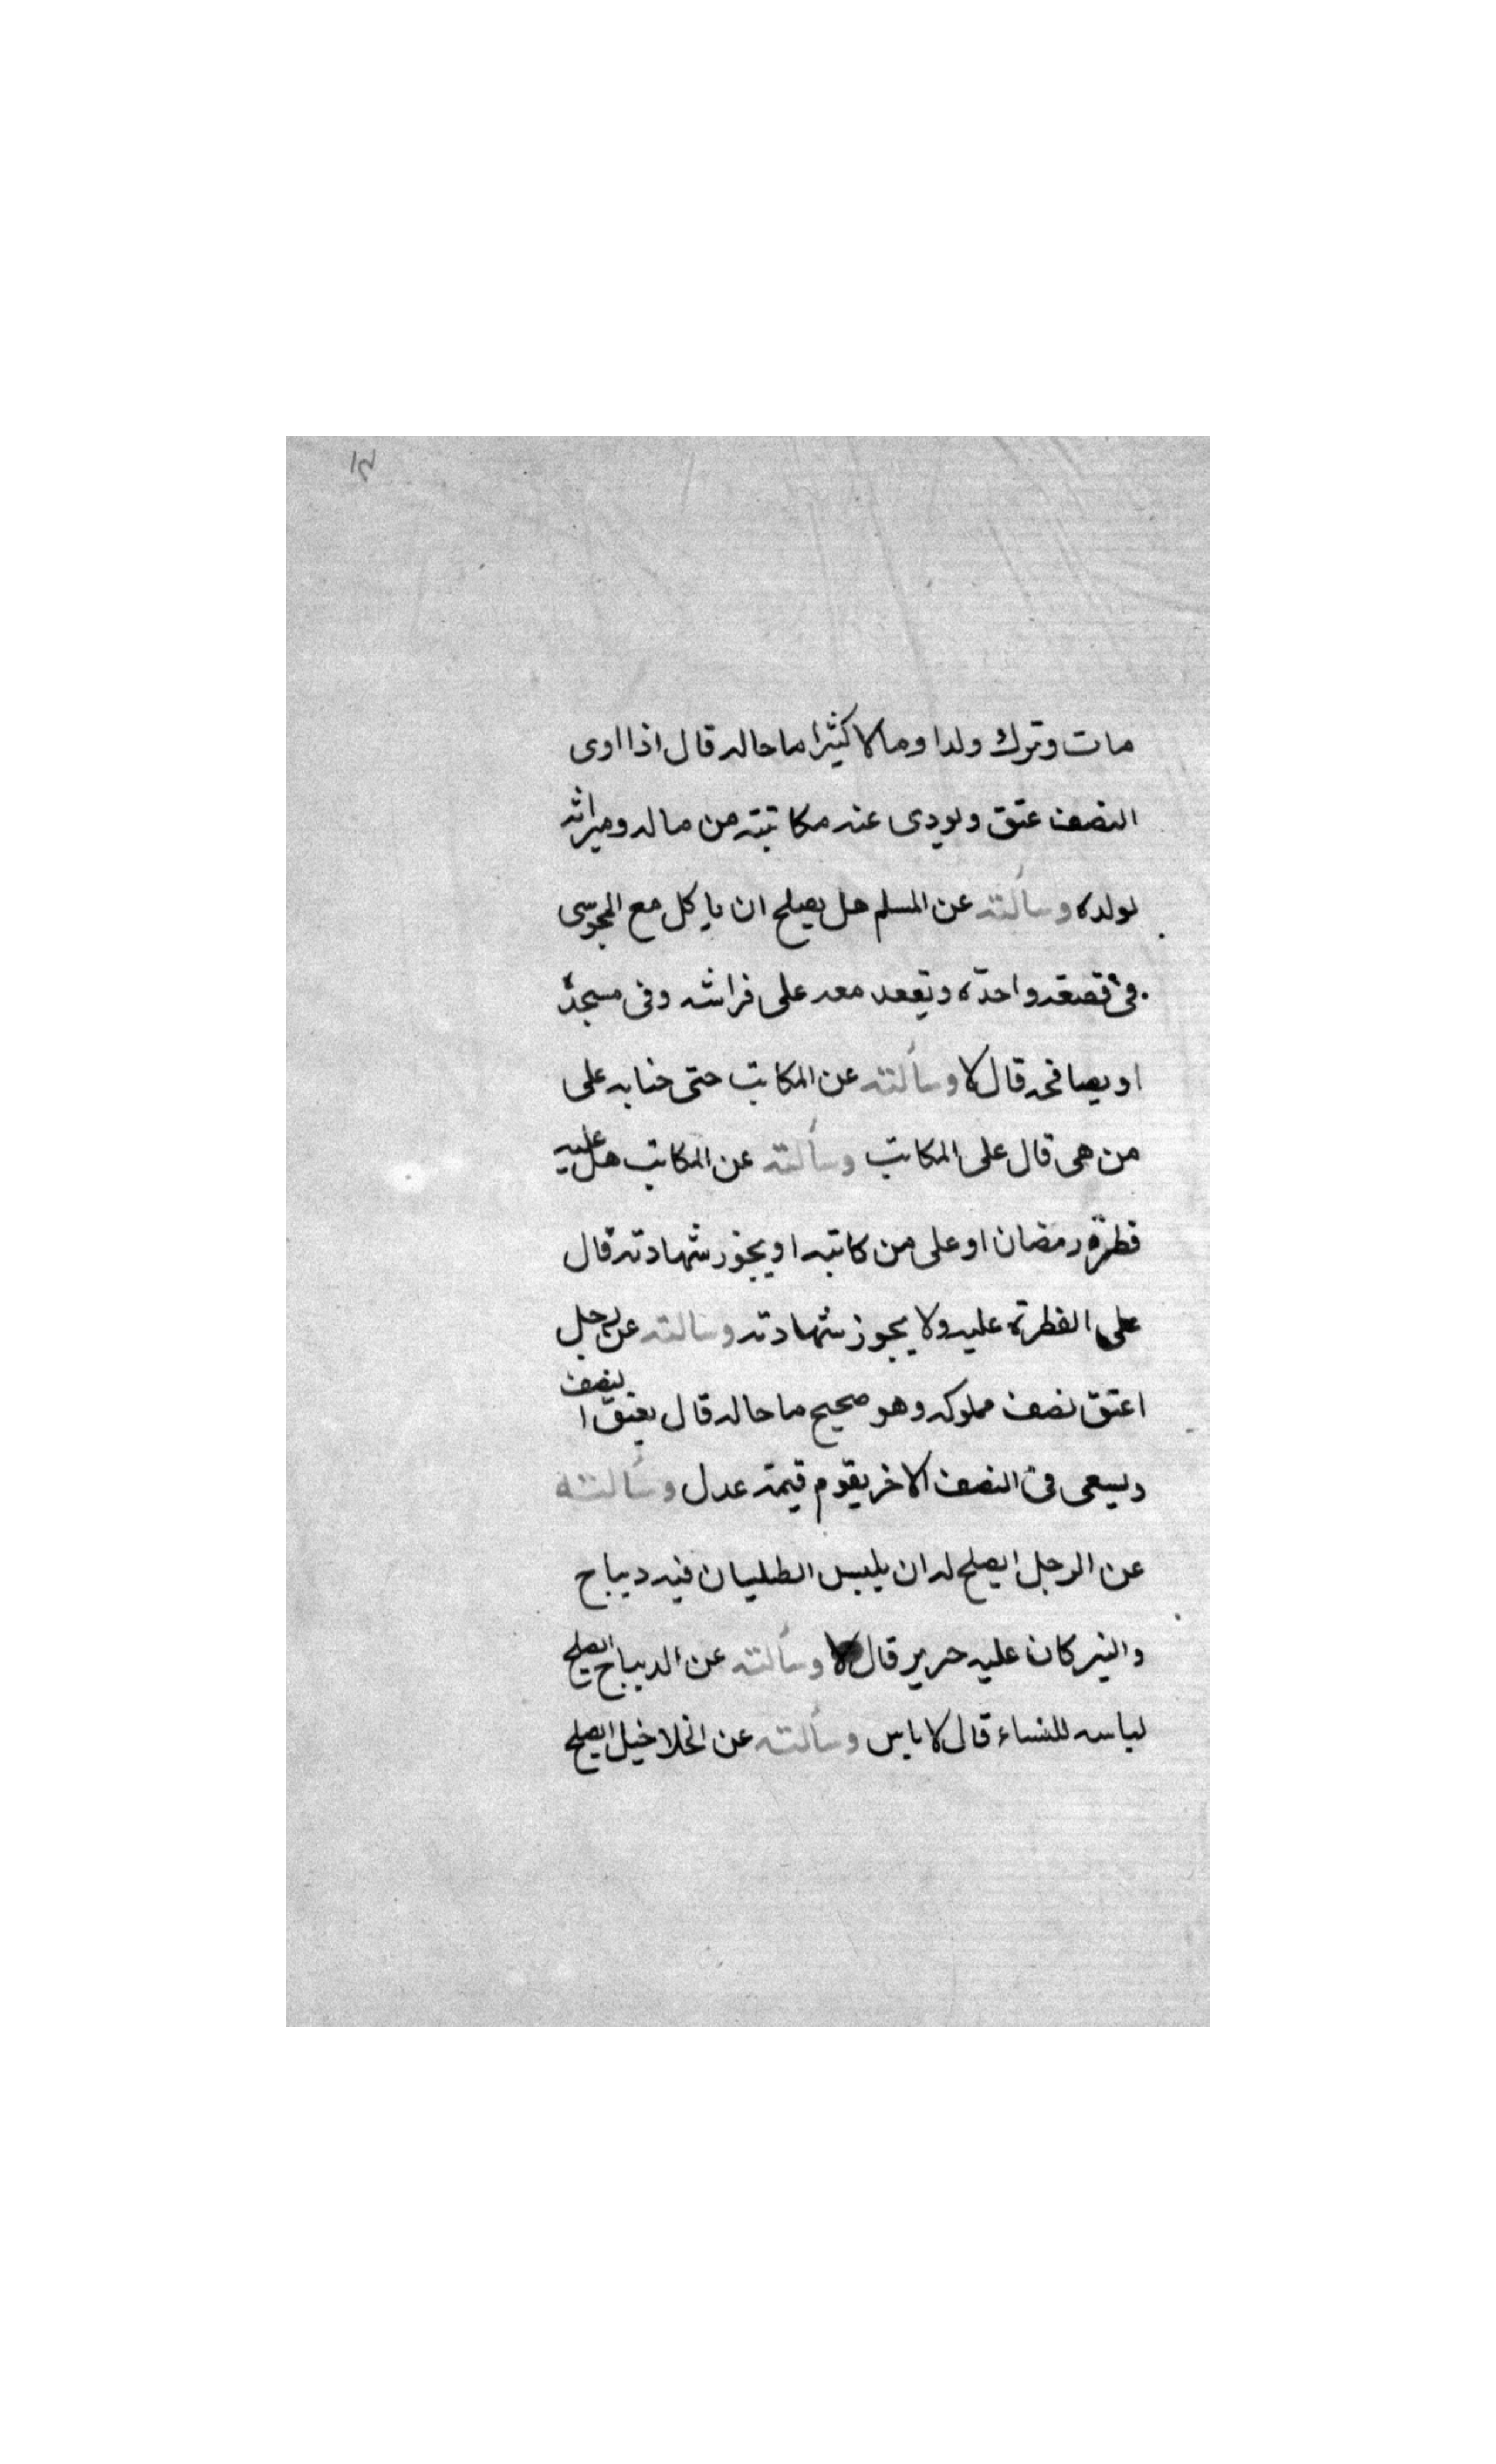 ١٢
مات وترك ولدا ومالا كثيرا ما حاله قال اذا ادى
النصف عتق ويودى عنه مكاتبته من ماله وميراثه
لولده وسألته عن المسلم هل يصلح ان ياكل مع المجوسى
فى قصعه واحدة ويقعد معه على فراشه وفى مسجده
او يصافحه قال لا وسألته عن المكاتب حتى جنايه على
من هى قال على المكاتب وسألته عن المكاتب هل عليه
فطرة رمضان او على من كاتبه او يجوز شهادته قال
على الفطرة عليه ولا يجوز شهادته وسالته عن رجل
اعتق نصف مملوكه وهو صحيح ما حاله قال يعتق النصف
ويسعى فى النصف الاخر يقوم قيمة عدل وسألته
عن الرجل ايصلح له ان يلبس الطلیسان فيه ديباج
والنير كان عليه حرير قال لا وسألته عن الديباج ايصلح
لباسه للنساء قال لا باس وسألته عن الخلاخيل ايصلح